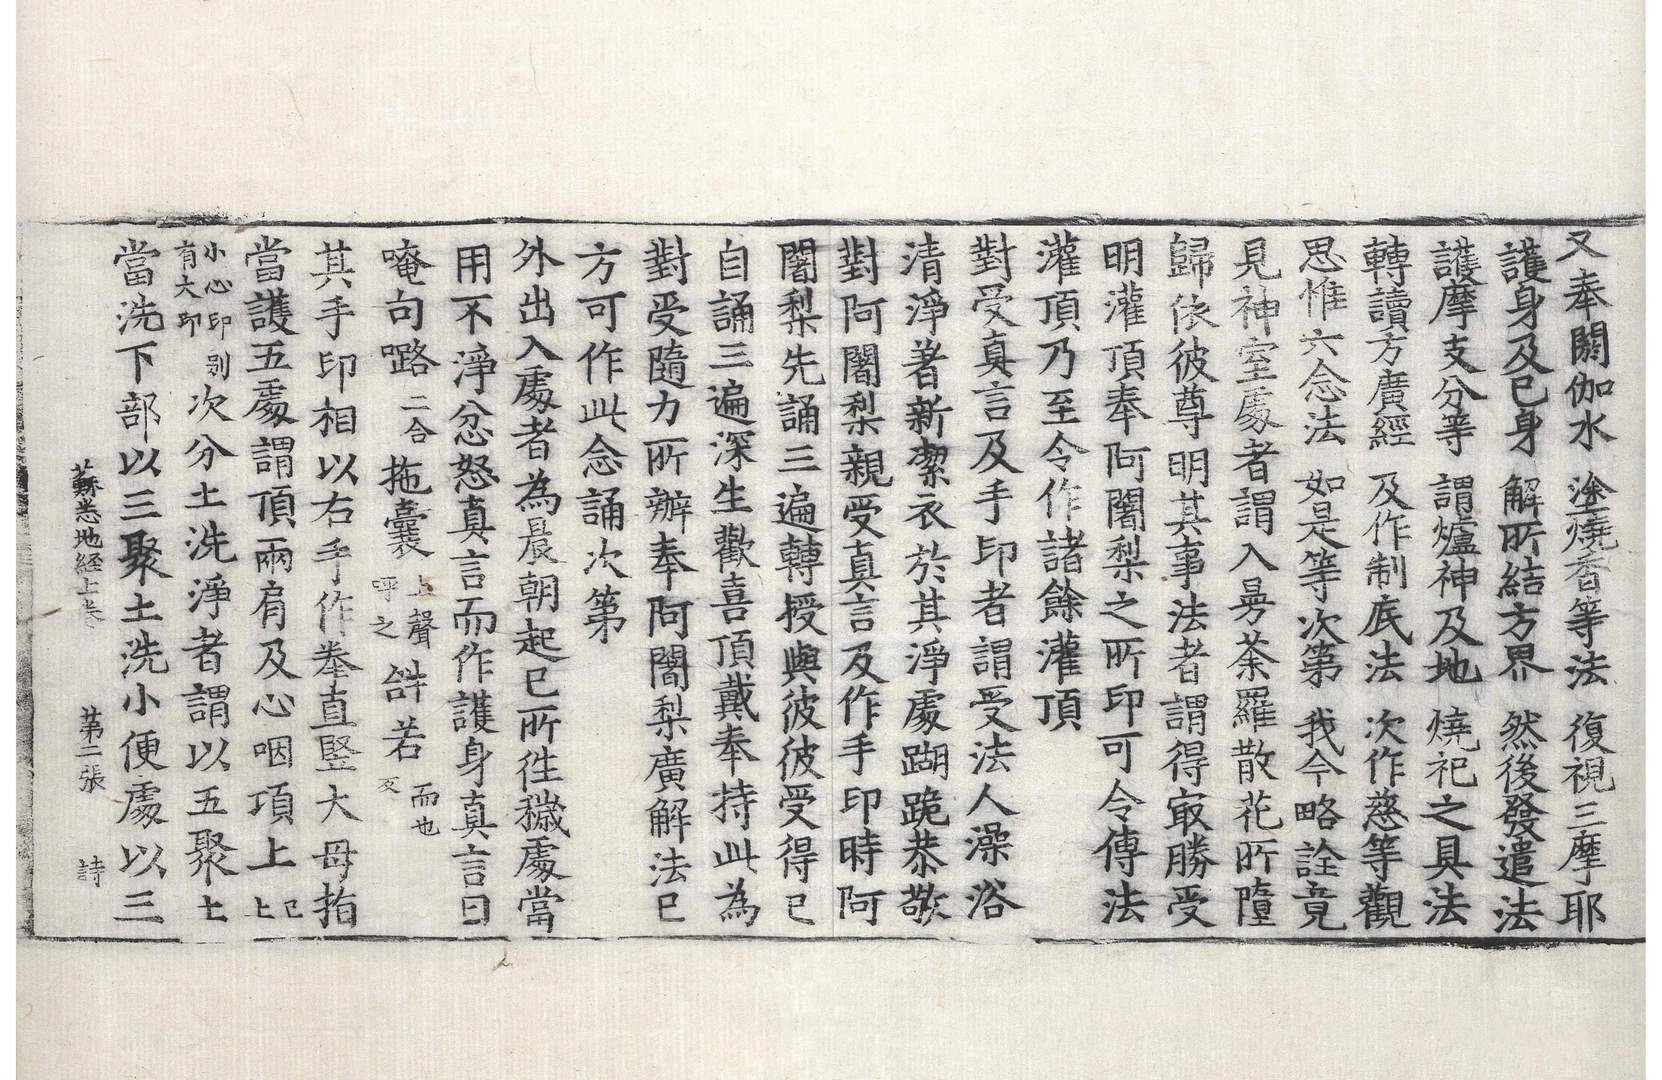 又奉閼伽水 塗燒香等法 復視三摩耶
護身及己身 解所結方界 然後發遣法
護摩支分等 謂爐神及地 燒祀之具法
轉讀方廣經 及作制底法 次作慈等觀
思惟六念法 如是等次第 我今略詮竟
見神室處者謂入曼荼羅散花所墮
歸依彼尊明其事法者謂得㝡勝受
明灌頂奉阿闍梨之所印可令傳法
灌頂乃至令作諸餘灌頂
對受真言及手印者謂受法人澡浴
清淨著新潔衣於其淨處䠒跪恭敬
對阿闍梨親受真言及作手印時阿
闍梨先誦三遍轉授與彼彼受得已
自誦三遍深生歡喜頂戴奉持此為
對受隨力所辦奉阿闍梨廣解法已
方可作此念誦次第
外出入處者為晨朝起已所徃穢處當
用不淨忿怒真言而作護身真言曰
唵句嚕二合拖囊上聲呼之䛟若而也反
其手印相以右手作拳直竪大母指
當護五處謂頂兩肩及心咽項上已上
小心印别有大印次分土洗淨者謂以五聚土
當洗下部以三聚土洗小便處以三
蘇悉地経上卷 苐二張 詩